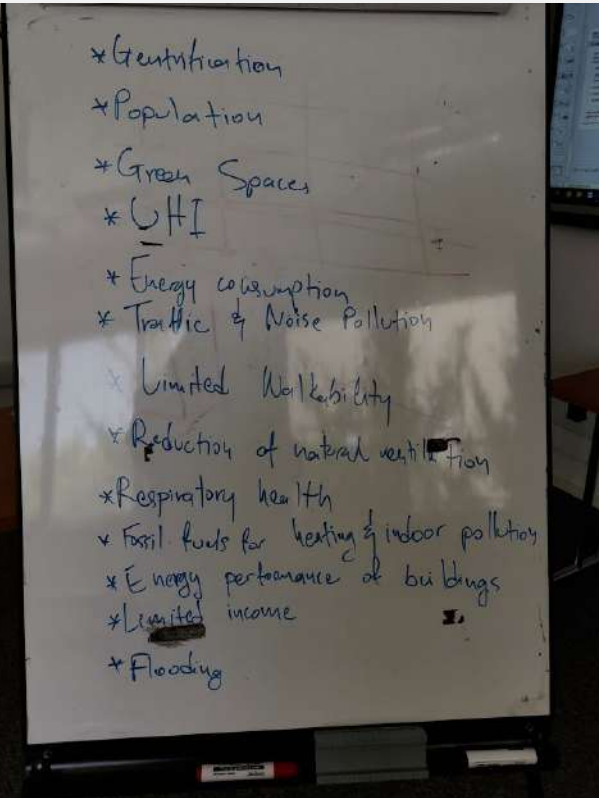 *Gentrification
*Population
*Green Spaces
*UHI
*Energy consumption
*Traffic & Noise Pollution
*Limited Walkability
*Reduction of natural ventilation
*Respiratory health
*Fossil fuels for heating & indoor pollution
*Energy perfomance of buildings
*Limited income
*Flooding